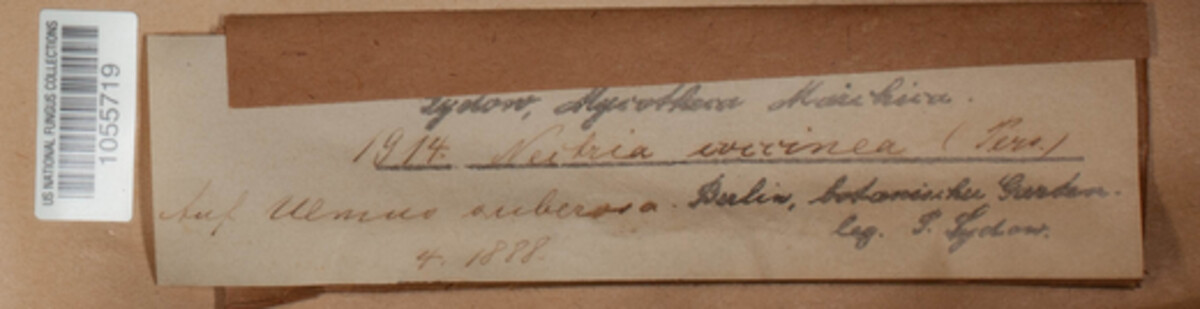 US NATIONAL FUNGUS COLLECTIONS
1055719
Sydow, Mycotheca Marchica.
1914. Nectria coccinea (Pers.)
Auf Ulmus suberosa. Berlin, botanischer Garten.
leg. P. Sydow.
4. 1888.